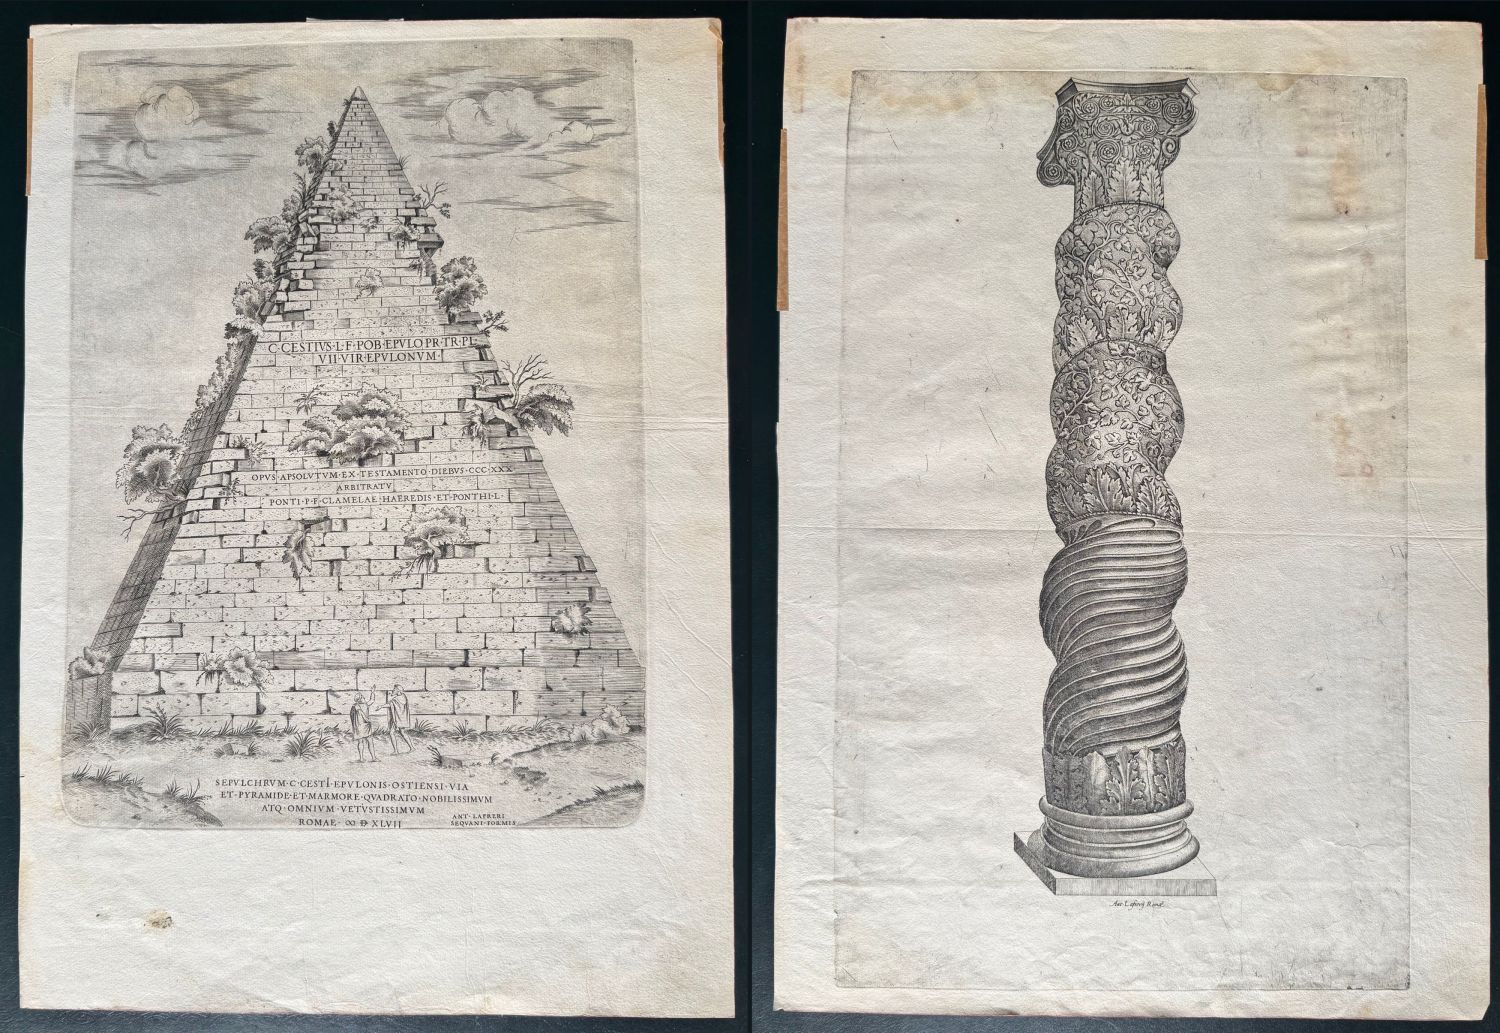 C·CESTIVS·L·F·POB·EPVLO·PR·TR·PL·
VII·VIR·EPVLONVM·
OPVS·APSOLVTVM·EX·TESTAMENTO·DIEBVS·CCC·XXX·
ARBITRATV
PONTI·P·F·CLAMELAE·HAEREDIS·ET·PONTHI·L·
SEPVLCHRVM·C·CESTI·EPVLONIS·OSTIENSI·VIA
ET·PYRAMIDE·ET·MARMORE·QVADRATO·NOBILISSIMVM
ATQ·OMNIVM·VETVSTISSIMVM
ROMAE·ↀ D XLVII
ANT·LAFRERI
SEQVANI·FORMIS
Ant. Lafrerij Romæ